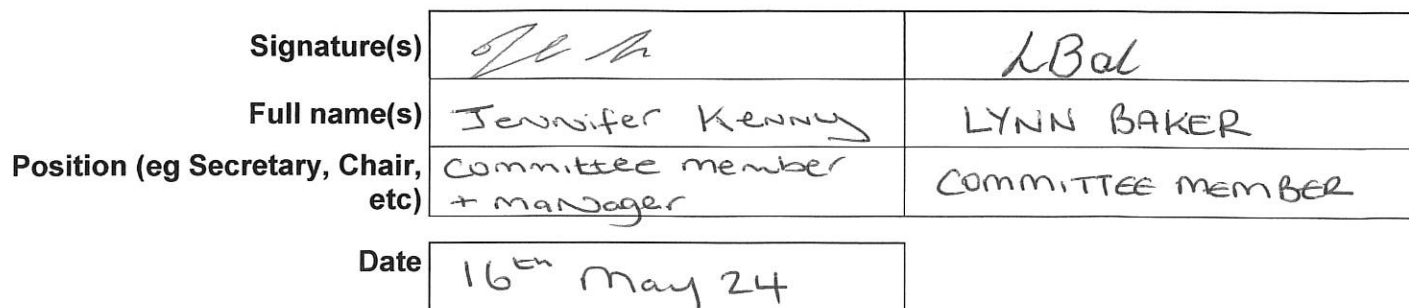 Signature(s) LBal
Full name(s) Jennifer Kenny LYNN BAKER
Position (eg Secretary, Chair, committee member COMMITTEE MEMBER
etc) + manager
Date 16th May 24